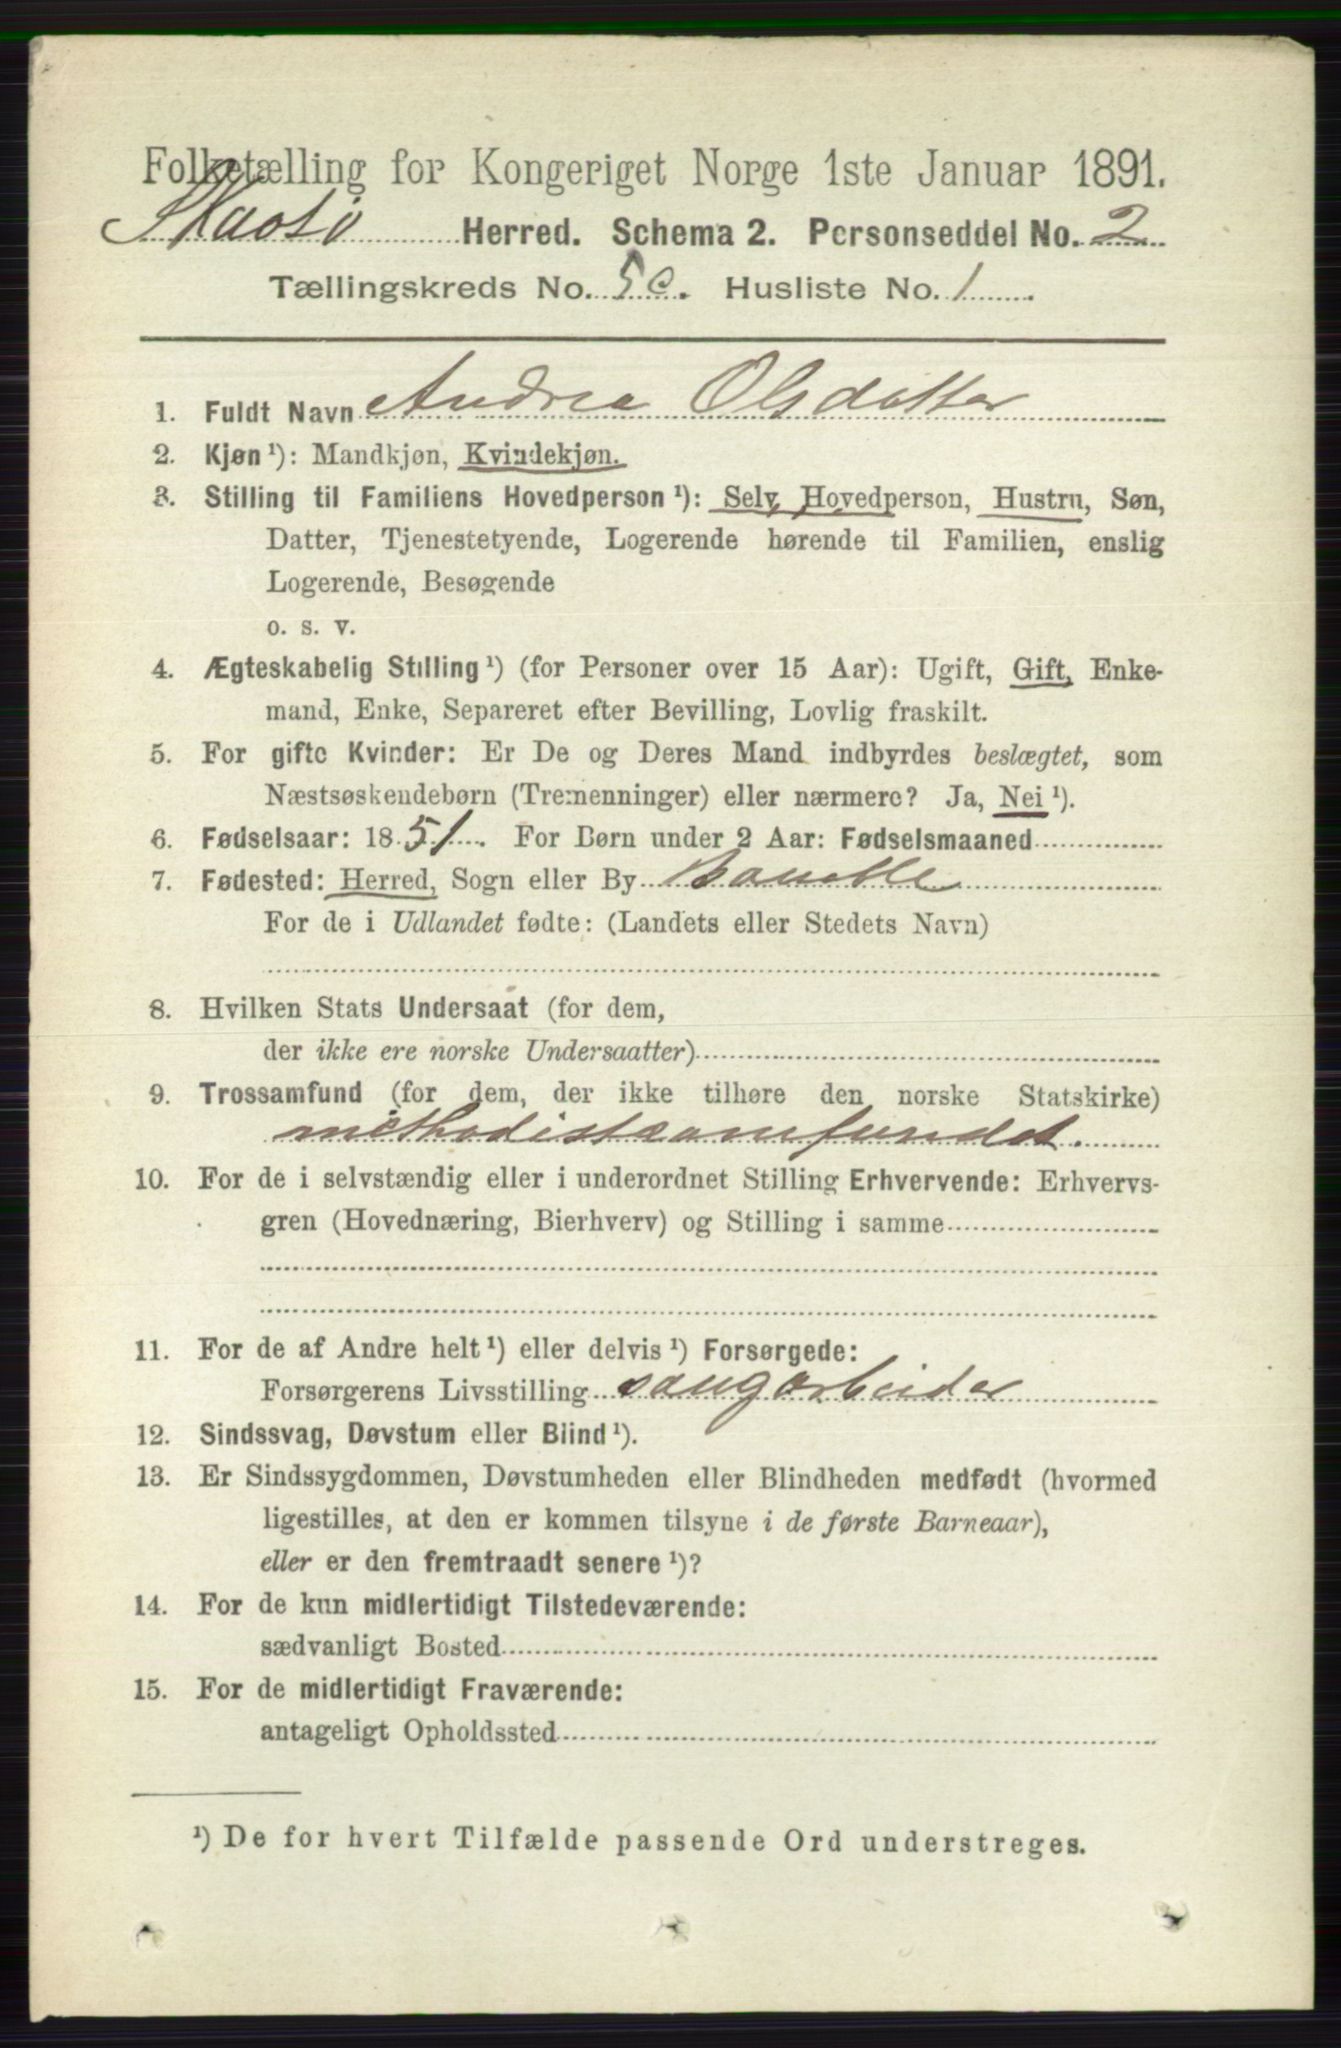 Folketælling for Kongeriget Norge 1ste Januar 1891.
Skaatø Herred. Schema 2. Personseddel No. 2
Tællingskreds No. 5c. Husliste No. 1
1. Fuldt Navn Andrea Olsdatter
2. Kjøn ¹): Mandkjøn, Kvindekjøn.
3. Stilling til Familiens Hovedperson ¹): Selv Hovedperson, Hustru, Søn,
Datter, Tjenestetyende, Logerende hørende til Familien, enslig
Logerende, Besøgende
o. s. v.
4. Ægteskabelig Stilling ¹) (for Personer over 15 Aar): Ugift, Gift, Enke-
mand, Enke, Separeret efter Bevilling, Lovlig fraskilt.
5. For gifte Kvinder: Er De og Deres Mand indbyrdes beslægtet, som
Næstsøskendebørn (Tremenninger) eller nærmere? Ja, Nei ¹).
6. Fødselsaar: 1851. For Børn under 2 Aar: Fødselsmaaned
7. Fødested: Herred, Sogn eller By Bamble
For de i Udlandet fødte: (Landets eller Stedets Navn)
8. Hvilken Stats Undersaat (for dem,
der ikke ere norske Undersaatter)
9. Trossamfund (for dem, der ikke tilhøre den norske Statskirke)
methodistsamfundet.
10. For de i selvstændig eller i underordnet Stilling Erhvervende: Erhvervs-
gren (Hovednæring, Bierhverv) og Stilling i samme
11. For de af Andre helt ¹) eller delvis ¹) Forsørgede:
Forsørgerens Livsstilling saugarbeider
12. Sindssvag, Døvstum eller Blind ¹).
13. Er Sindssygdommen, Døvstumheden eller Blindheden medfødt (hvormed
ligestilles, at den er kommen tilsyne i de første Barneaar),
eller er den fremtraadt senere ¹)?
14. For de kun midlertidigt Tilstedeværende:
sædvanligt Bosted
15. For de midlertidigt Fraværende:
antageligt Opholdssted
¹) De for hvert Tilfælde passende Ord understreges.